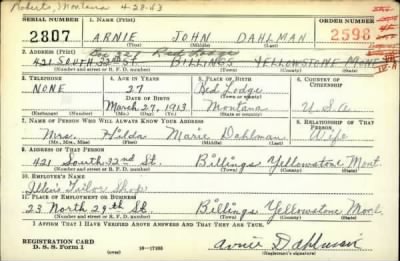 Roberts, Montana 4-28-43
SERIAL NUMBER 1. NAME (Print) ORDER NUMBER
2807 ARNIE JOHN DAHLMAN 2598
(First) (Middle) (Last)
2. ADDRESS (Print) Box 32 Red Lodge
421 SOUTH 32nd ST. BILLINGS YELLOWSTONE MONT
(Number and street or R. F. D. number) (Town) (County) (State)
3. TELEPHONE 4. AGE IN YEARS 5. PLACE OF BIRTH 6. COUNTRY OF CITIZENSHIP
NONE 27 Red Lodge
DATE OF BIRTH (Town or county)
March 27, 1913 Montana U.S.A.
(Exchange) (Number) (Mo.) (Day) (Yr.) (State or country)
7. NAME OF PERSON WHO WILL ALWAYS KNOW YOUR ADDRESS 8. RELATIONSHIP OF THAT PERSON
Mrs. Hilda Marie Dahlman Wife
(Mr., Mrs., Miss) (First) (Middle) (Last)
9. ADDRESS OF THAT PERSON
421 South 32nd St. Billings Yellowstone Mont.
(Number and street or R. F. D. number) (Town) (County) (State)
10. EMPLOYER'S NAME
Tailor Shop
11. PLACE OF EMPLOYMENT OR BUSINESS
23 North 29th St. Billings Yellowstone Mont.
(Number and street or R. F. D. number) (Town) (County) (State)
I AFFIRM THAT I HAVE VERIFIED ABOVE ANSWERS AND THAT THEY ARE TRUE.
REGISTRATION CARD
D. S. S. Form 1 (over) 16-17105 Arnie Dahlman
(Registrant's signature)